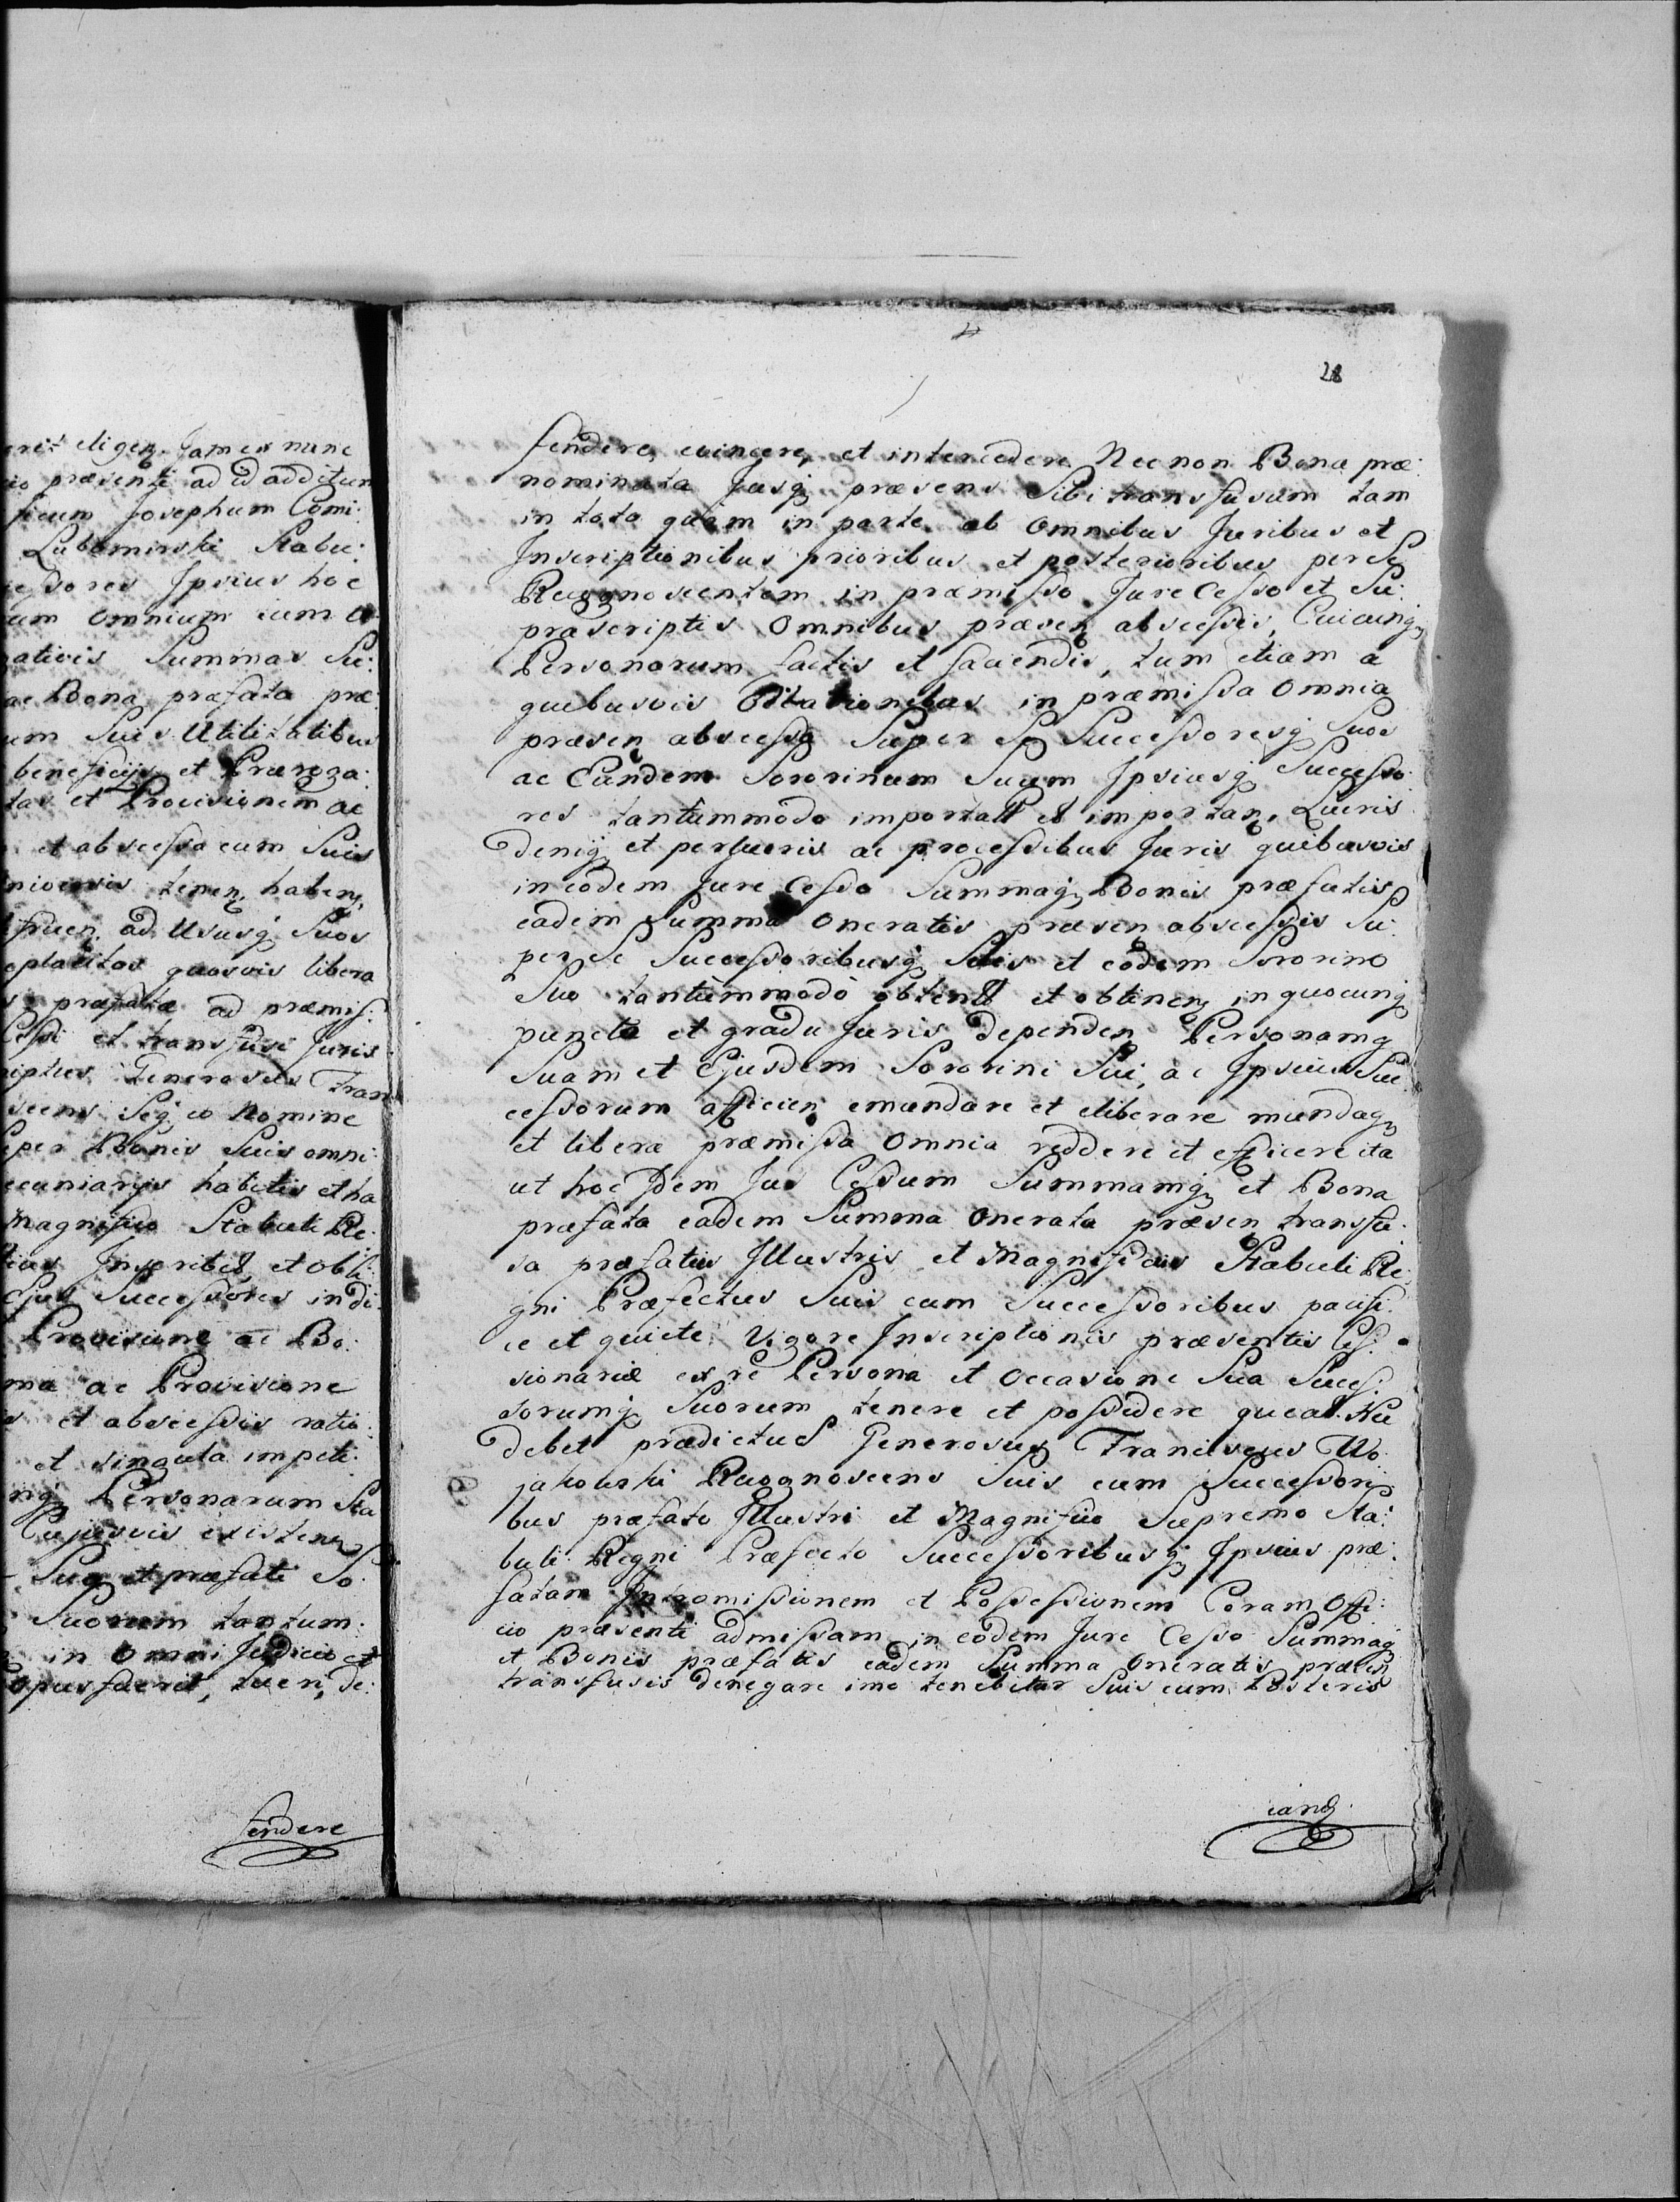 eri˜ eligen. Jam ex nunc
io præsenti ad id additum
ficum Josephum Comi:
Lubomirski Stabu:
ceſsores Ipsius hoc
um omnium cum
ativis Summas Su:
ac Bona præfata præ:
um Suis Utilitatibus
beneficijs et Præroga:
tas et Provisionem ac
et absceſsa cum Suis
nioensis tenen, haben,
fruen, ad Ususq Suos
placitos quosvis libera
præfatæ ad præmiſ:
Ceſsi et transfusi Juris
riptus Generosus Fran
scens Seq eo Nomine
per Bonis Suis omni:
ecuniarijs habitis et ha
Magnifico Stabuli Re:
ius Inscribit et obli:
Ejus Succeſsores indi:
Provisione ac Bo:
ma ac Provisione
s et absceſsis ratio:
et singula impeti:
nq Personarum Sta
Cujusvis existen
Suq et præfati So:
Suorum tantum:
in omni Judicio et
opus fuerit, tueri, de:
fendere
28
fendere, evincere, et intercedere Nec non Bona præ:
nominata Jusq præsens Sibi transfusum tam
in toto quàm in parte, ab omnibus Juribus et
Inscriptionibus prioribus et posterioribus per Se
Recognoscentem in præmiſso Jure Ceſso et Su:
præscriptis omnibus præsen absceſsis, Cuicunq
Personarum factis et faciendis, tum etiam a
quibusvis in præmiſsa omnia
præsen absceſsa Super Se Succeſsoresq Suos
ac Eundem Sororinum Suum Ipsiusq Succeſso:
res tantùmmodo importatt et importan, Lucris
deniq et perlucris ac proceſsibus Juris quibusvis
in eodem Jure Ceſso Summaq Bonis præfatis
eadem Summa oneratis præsen absceſsis Su:
per Se Succeſsoribusq Suis et eodem Sororino
Suo tantùmmodò obtentt et obtinen, in quocunq
puncto et gradu Juris dependen Personamq
Suam et Ejusdem Sororini Sui, ac Ipsius Suc:
ceſsorum afficien emundare et eliberare mundaq
et libera præmiſsa omnia reddere et efficere ita
ut hoc Idem Jus Ceſsum Summamq et Bona
præfata eadem Summa onerata præsen transfu:
sa præfatus Illustris et Magnificus Stabuli Re:
gni Præfectus Suis cum Succeſsoribus pacifi:
ce et quiete Vigore Inscriptionis præsentis Ceſ:
sionariæ ex re Persona et occasione Sua Succeſ:
sorumq Suorum tenere et poſsidere queat. Nu
debet prædictus Generosus Franciscus Wo:
jakowski Recognoscens Suis cum Succeſsori:
bus præfato Illustri et Magnifico Supremo Sta:
buli Regni Præfecto Succeſsoribusq Ipsius præ:
fatam Intromiſsionem et Poſseſsionem Coram offi:
cio præsenti admiſsam in eodem Jure Ceſso Summaq
et Bonis præfatis eadem Summa oneratis præsen
transfusis denegare imo tenebitur Suis cum Posteris
eand.